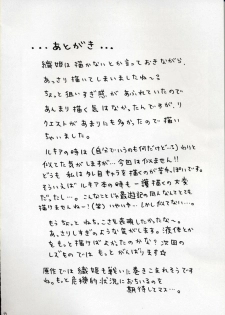 ・・・あとがき・・・
織姫は描かないとか言っておきながら、
あっさり描いてしまいましたね〜
ちょっと狙いすぎ感があふれていたので
あんまり描く気はなか、たんですが、リ
クエストがあまりにも多か、たので描い
ちゃいました。
ルキアの時は(自分でいうのも何だけど…)わり
と似てた気がしますが…今回は似ません!!
どうも私はタレ目キャラを描くのが苦手、ぽいです。
そういえばルキア本の時も一護描くの大変
だ、たし…。こんなじゃ最遊記の
描けませんね〜!(笑)いやいや…(しかし似てない…)
もうちょっとねちっこさを表現したか、たな〜。
あ、さりしすぎのような気がします。液体とか
をもっと描けばよか、たのかな?次回の
しずものではもっとがんばります☆
原作では織姫も戦いに巻きこまれそうですね。
もっと危機的状況におちいるのを
期待してマス…。